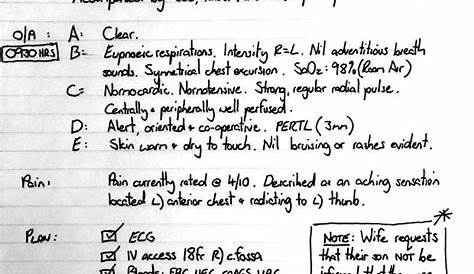 Accompanied by
O/A: A: Clear.
0930 HRS B: Eupnoeic respirations. Intensity R=L. Nil adventitious breath
sounds. Symmetrical chest excursion. SaO2: 98% (Room Air)
C: Normocardic. Normotensive. Strong, regular radial pulse.
Centrally & peripherally well perfused.
D: Alert, oriented & co-operative. PERTL (3mm)
E: Skin warm & dry to touch. Nil bruising or rashes evident.
Pain: Pain currently rated @ 4/10. Described as an aching sensation
located L) anterior chest & radiating to L) thumb.
Plan: ☑ ECG
☑ IV access 18g R) c.fossa
Bloods: FBC, UEC,
NOTE: Wife requests
that their son NOT be
informed